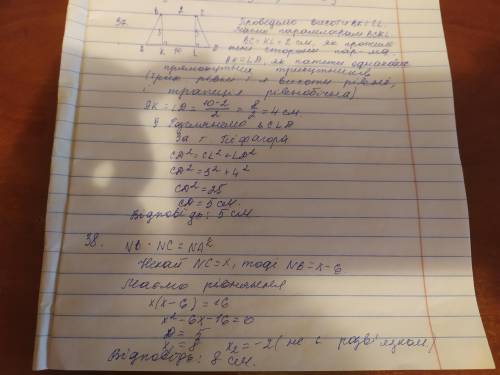 37.
B 2 C
3 3
A K 10 L D
Проведемо висоти BK і CL.
Маємо паралелограм BCKL
BC = KL = 2 см, як протилежні сторони пар-ма.
AK = LD, як катети однакових
прямокутних трикутників
рівні і висоти рівні,
і трапеція рівнобічна)
AK = LD = 10-2/2 = 8/2 = 4 см.
З Розглянемо △ CLD
За т. Піфагора
CD² = CL² + LD²
CD² = 3² + 4²
CD² = 25
CD = 5 см.
Відповідь: 5 см
38.
NB · NC = NA²
Нехай NC = x, тоді NB = x - 6
Маємо рівняння
x(x-6) = 16
x² - 6x - 16 = 0
D = 5
x₁ = 8 x₂ = -2 (не є розв'язком)
Відповідь: 8 см.